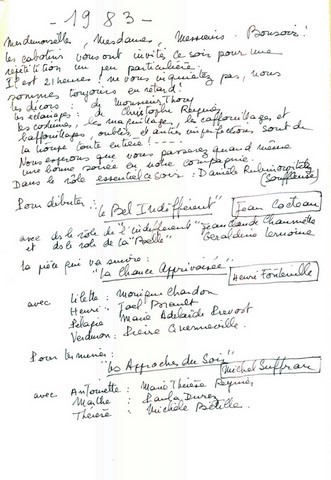 - 1983 -
Mesdemoiselles, Mesdames, Messieurs. Bonsoir!
les cabotins vous ont invités ce soir pour une
répétition un peu particulière.
Il est 21 heures! ne vous inquiétez pas, nous
sommes toujours en retard!
les décors: de Monsieur Thory
les éclairages: de Christophe Reynès
les costumes, les maquillages, les cafouillages et
bafouillages, oublis et autres imperfections sont de
la troupe toute entière! ----
Nous espérons que vous passerez quand même
une bonne soirée en notre compagnie.
Dans le rôle essentiel ce soir: Danièle
(souffleuse)
Pour débuter: "le Bel Indifférent" Jean Cocteau
avec ds le rôle de l'"indifférent" Jean Claude
et ds le rôle de la Géraldine Lemoine
la pièce qui va suivre:
"La Chance Apprivoisée" Henri Fontenille
avec Lilette: Monique Chardon
Henri: Joël Perault
Pélagie Marie Adélaïde Prevost
Verdinon: Pierre Quermeville.
Pour terminer:
"les Approches du Soir" Michel Suffran
avec Antoinette: Marie Thérèse Reynès
Marthe: Paula Durez
Thérèse: Michèle